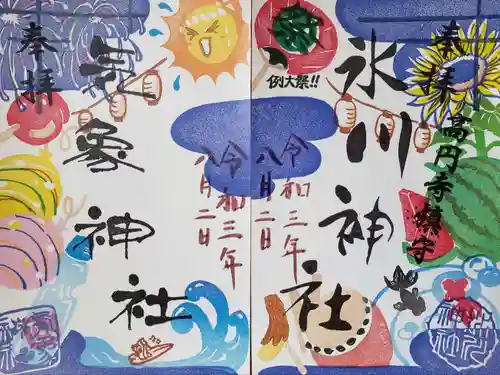 奉拝
高円寺鎮守
氷川神社
例大祭!!
令和三年
八月二日
奉拝
気象神社
令和三年
八月二日